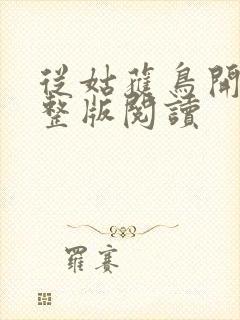 從姑蓷鳥開
整版閱讀
羅賽